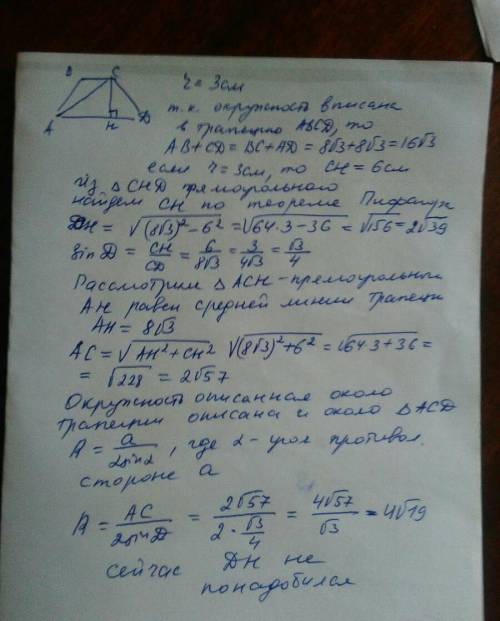 B C
A H D
r = 3см
т.к. окружность вписана
в трапецию ABCD, то
AB+CD = BC+AD = 8√3+8√3=16√3
если r=3см, то CH = 6см
Из △CHD прямоугольного
найдем CH по теореме Пифагора
DH = √(8√3)²-6² = √64·3-36 = √156 = 2√39
sin D = CH/CD = 6/8√3 = 3/4√3 = √3/4
Рассмотрим △ACH - прямоугольный
AH равен средней линии трапеции
AH = 8√3
AC = √AH²+CH² √(8√3)²+6² = √64·3+36 =
= √228 = 2√57
Окружность описанная около
трапеции описана и около △ACD
R = a/2sinα, где α - угол противол.
стороне a
R = AC/2sinD = 2√57/2·√3/4 = 4√57/√3 = 4√19
сейчас DH не
понадобился